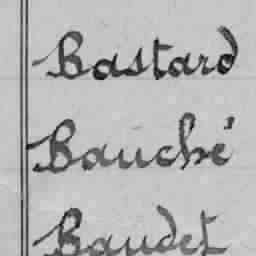 Bastard
Bauché
Baudet